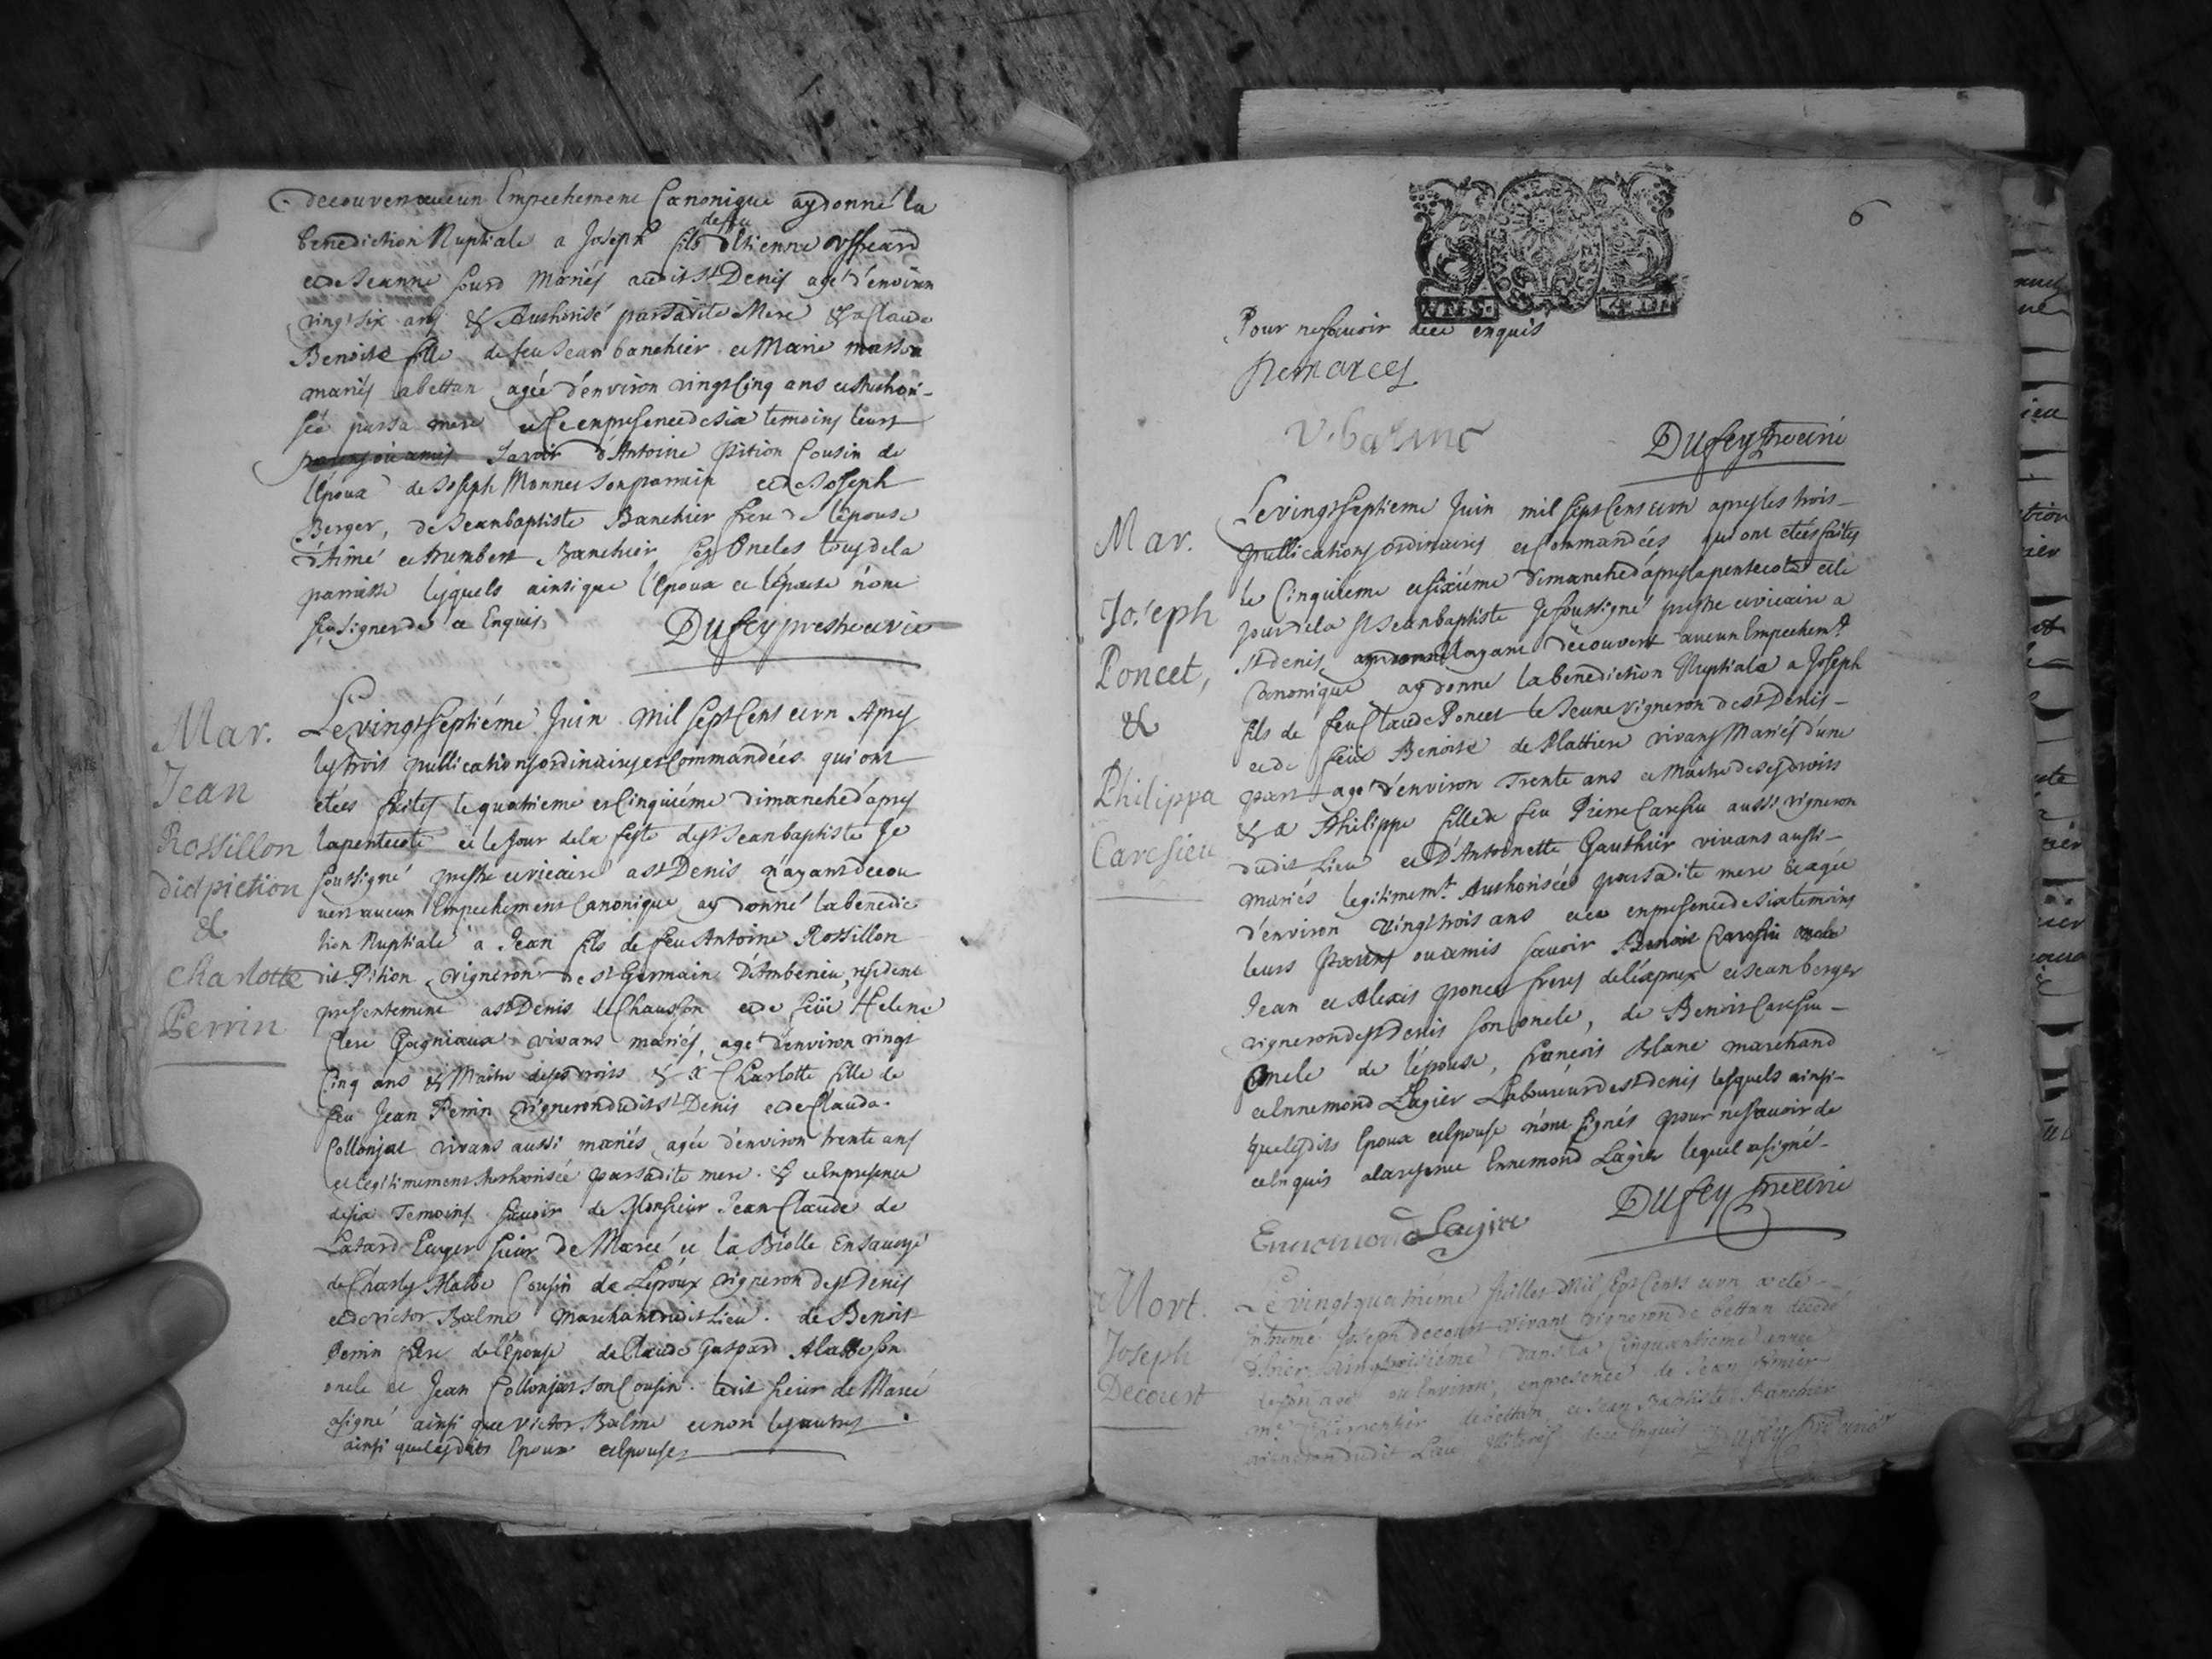 decouvert aucun Empechement Canonique ay donné la
benediction Nuptiale a Joseph fils de feu Etienne
et de Jeanne sourd Mariés audit St Denis agé d'environ
vingt six ans & Authorisé par sadite Mere & a Claude
Benoite fille de feu Jean banchier et Marie masson
mariés a bettan agée d'environ vingt Cinq ans et Authori-
sée par sa mere et ce en presence de six temoins leurs
parens ou amis Savoir d'Antoine Pition Cousin de
l'Epoux de Joseph Monnet son parrain et de Joseph
Berger, de Jean baptiste Banchier frere de l'epouse
d'Aimé et humbert Banchier ses Oncles tous de la
parroisse lesquels ainsi que l'Epoux et l'épouse n'ont
sçu signer de ce Enquis
Dufey prestre et vic
Mar.
Jean
Rossillon
dict piction
&
Charlotte
Perrin
Le vingt Septiéme Juin Mil Sept Cent et un Apres
les trois publications ordinaires et Commandées qui ont
etées faites le quatrieme et Cinquiéme dimanche d'apres
la pentecote et le Jour de la feste de St Jean baptiste Je
soussigné prestre et vicaire a St Denis n'ayant decou
vert aucun Empechement Canonique ay donné la benedic
tion Nuptiale a Jean fils de feu Antoine Rossillon
dit Pition vigneron de St Germain D'Amberieu, resident
presentement a St Denis le Chausson et de feüe Helene
Clere Gagniaux vivans mariés, agé d'environ vingt
Cinq ans & Maitre de ses droits & a Charlotte fille de
feu Jean Perrin vigneron dudit St Denis et de Clauda
Collonjat vivans aussi mariés agée d'environ trente ans
et legitimement Authorisée par sadite mere & et en presence
de six Temoins Savoir de Monsieur Jean Claude de
Latard Ecuyer sieur De Marcé et la Biolle En savoye
de Charles Malbe Cousin de L'epoux vigneron de St Denis
et de victor Balme Marchand dudit Lieu. de Benoit
Perrin frere de l'Epouse de Claude Gaspard son
oncle et Jean Collonjat son Cousin. ledit sieur de Marcé
a signé ainsi que victor Balme et non les autres
ainsi que lesdits Epoux et Epouse
6
Pour ne savoir de ce enquis
Demarcel
V. balme
Dufey pre et vic
Mar.
Joseph
Poncet,
&
Philippa
Caresieu
Le vingt Septieme Juin mil Sept Cent et un apres les trois
publications ordinaires et Commandées qui ont etées faites
le Cinquieme et sixiéme dimanche d'apres la pentecote et le
jour de la St Jean baptiste Je soussigné prestre et vicaire a
St denis n'ayant découvert aucun Empechemt
Canonique ay donné la benediction Nuptiale a Joseph
fils de feu Claude Poncet le Jeune vigneron de St Denis
et de feüe Benoite de Plattiere vivans Mariés d'une
part agé d'environ Trente ans et Maitre de ses droits
& a Philippe fille de feu Pierre Caresieu aussi vigneron
dudit Lieu et D'Antoinette Gauthier vivans aussi
mariés legitimemt. Authorisée par sadite mere & agée
d'environ vingt trois ans et ce en presence de six temoins
leurs Parens ou amis savoir Benoit Caresieu oncle
Jean et Alexis poncet freres de l'époux et Jean berger
vigneron de St Denis son oncle, de Benoit Caresieu
Oncle de l'épouse, françois Blanc marchand
et Ennemond Lagier Laboureur de St denis lesquels ainsi
que lesdits Epoux et Epouse n'ont signés pour ne savoir de
ce Enquis a la reserve Ennemond Lagier lequel a signé
Ennemond Lagier
Dufey pre et vic
Mort.
Joseph
Decourt
Le vingt quatrieme Juillet Mil Sept Cents et un a eté
Inhumé Joseph decourt vivant vigneron de bettan decedé
d'hier vingt troisiéme dans la Cinquantieme année
de son age ou Environ, en presence de Jean
me Charpentier de bettan et Jean Baptiste Banchier
vigneron dudit Lieu de ce Enquis
Dufey pre et vic